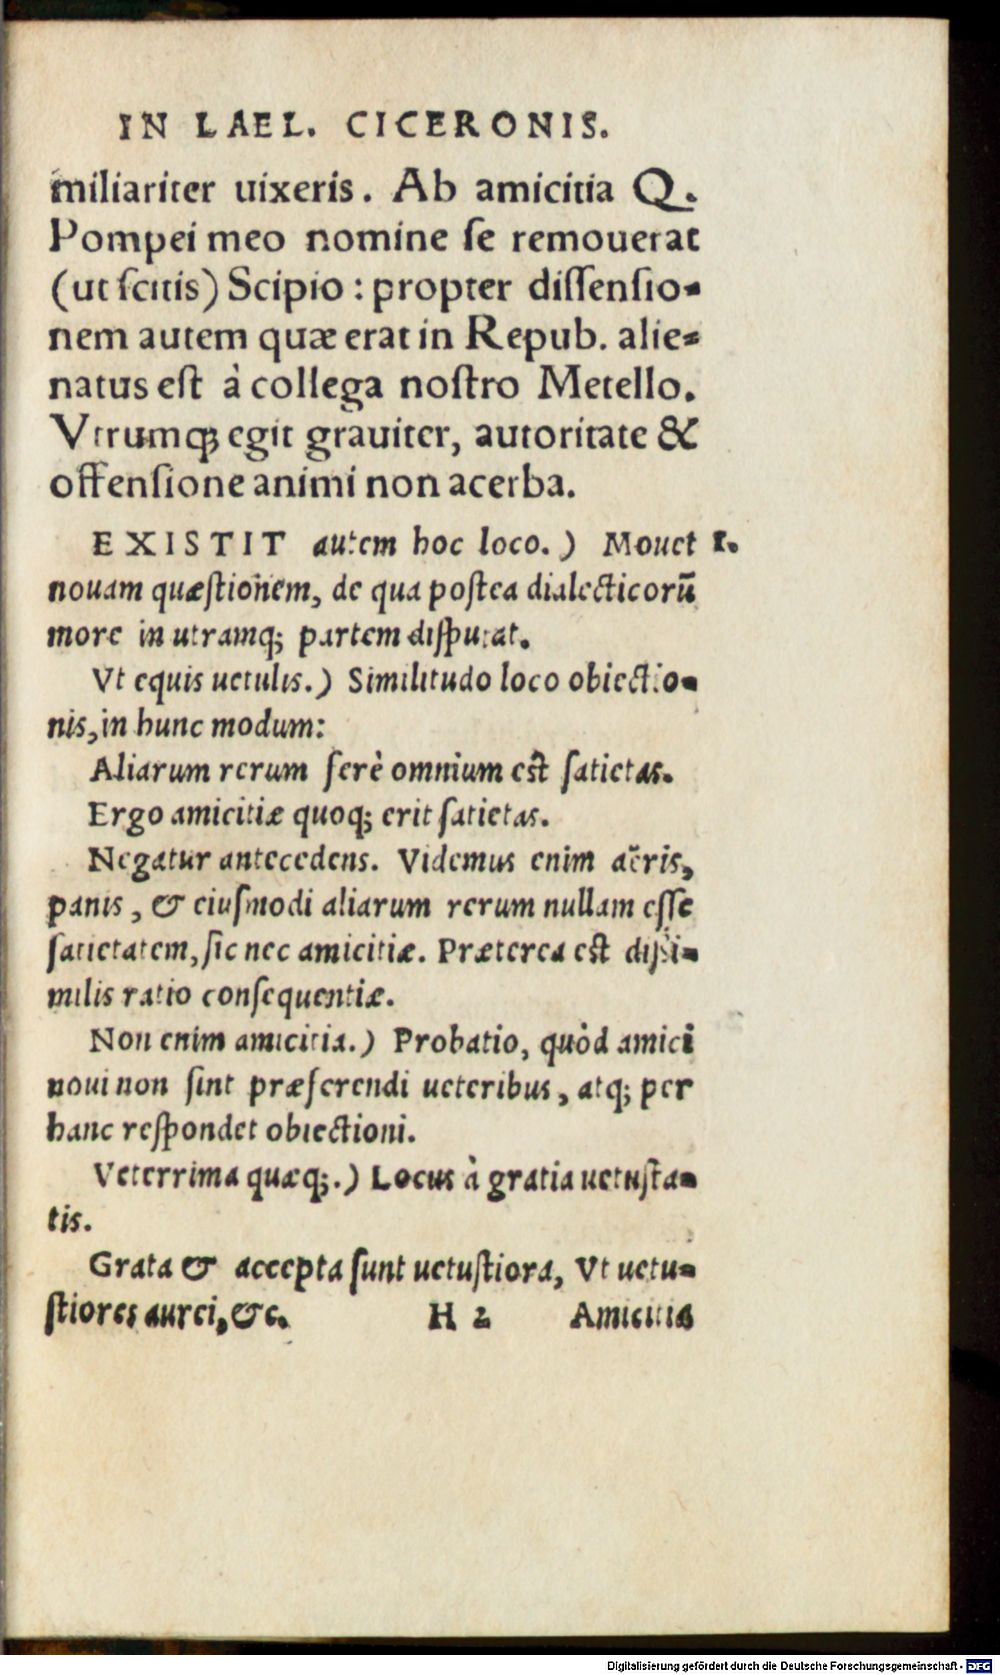 IN LAEL. CICERONIS.
miliariter uixeris. Ab amicitia Q.
Pompei meo nomine ſe remouerat
(ut ſcitis) Scipio: propter diſſenſio-
nem autem quæ erat in Repub. alie-
natus eſt à collega noſtro Metello.
Vtrumq; egit grauiter, autoritate &
offenſione animi non acerba.
EXISTIT autem hoc loco.) Mouet 1.
nouam quæſtionem, de qua poſtea dialecticorū
more in utramq; partem diſputat.
Vt equis uetulis.) Similitudo loco obiectio-
nis, in hunc modum:
Aliarum rerum ferè omnium eſt ſatietas.
Ergo amicitiæ quoq; erit ſatietas.
Negatur antecedens. Videmus enim aëris,
panis, & eiuſmodi aliarum rerum nullam eſſe
ſatietatem, ſic nec amicitiæ. Præterea eſt diſsi-
milis ratio conſequentiæ.
Non enim amicitia.) Probatio, quòd amici
noui non ſint præferendi ueteribus, atq; per
hanc reſpondet obiectioni.
Veterrima quæq;.) Locus à gratia uetuſta-
tis.
Grata & accepta ſunt uetuſtiora, Vt uetu-
ſtiores aurei, &c. H 2 Amicitia
Digitalisierung gefördert durch die Deutsche Forschungsgemeinschaft - DFG